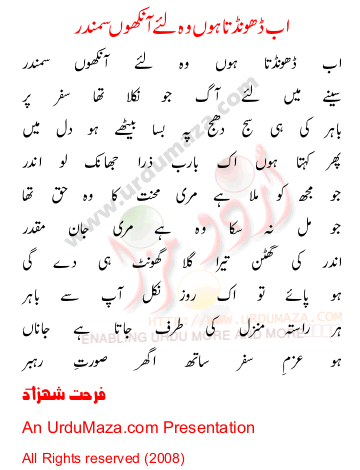 اب ڈھونڈتا ہوں وہ لئے آنکھوں سمندر
اب ڈھونڈتا ہوں وہ لئے آنکھوں سمندر
سینے میں لئے آگ جو نکلا تھا سفر پر
باہر کی ہی سج دھج پہ بسا بیٹھے ہو دل میں
پھر کہتا ہوں اک بارب ذرا جھانک لو اندر
جو مجھ کو ملا ہے مری محنت کا وہ حق تھا
جو مل نہ سکا وہ ہے مری جان مقدر
اندر کی گھٹن تیرا گلا گھونٹ ہی دے گی
ہو پائے تو اک روز نکل آپ سے باہر
ہر راستہ منزل کی طرف جاتا ہے جاناں
ہو عزمِ سفر ساتھ اگھر صورتِ رہبر
فرحت شہزاد
An UrduMaza.com Presentation
All Rights reserved (2008)
www.urdumaza.com
اردو مزا
HTTP://WWW.URDUMAZA.COM
ENABLING URDU MORE AND MORE...